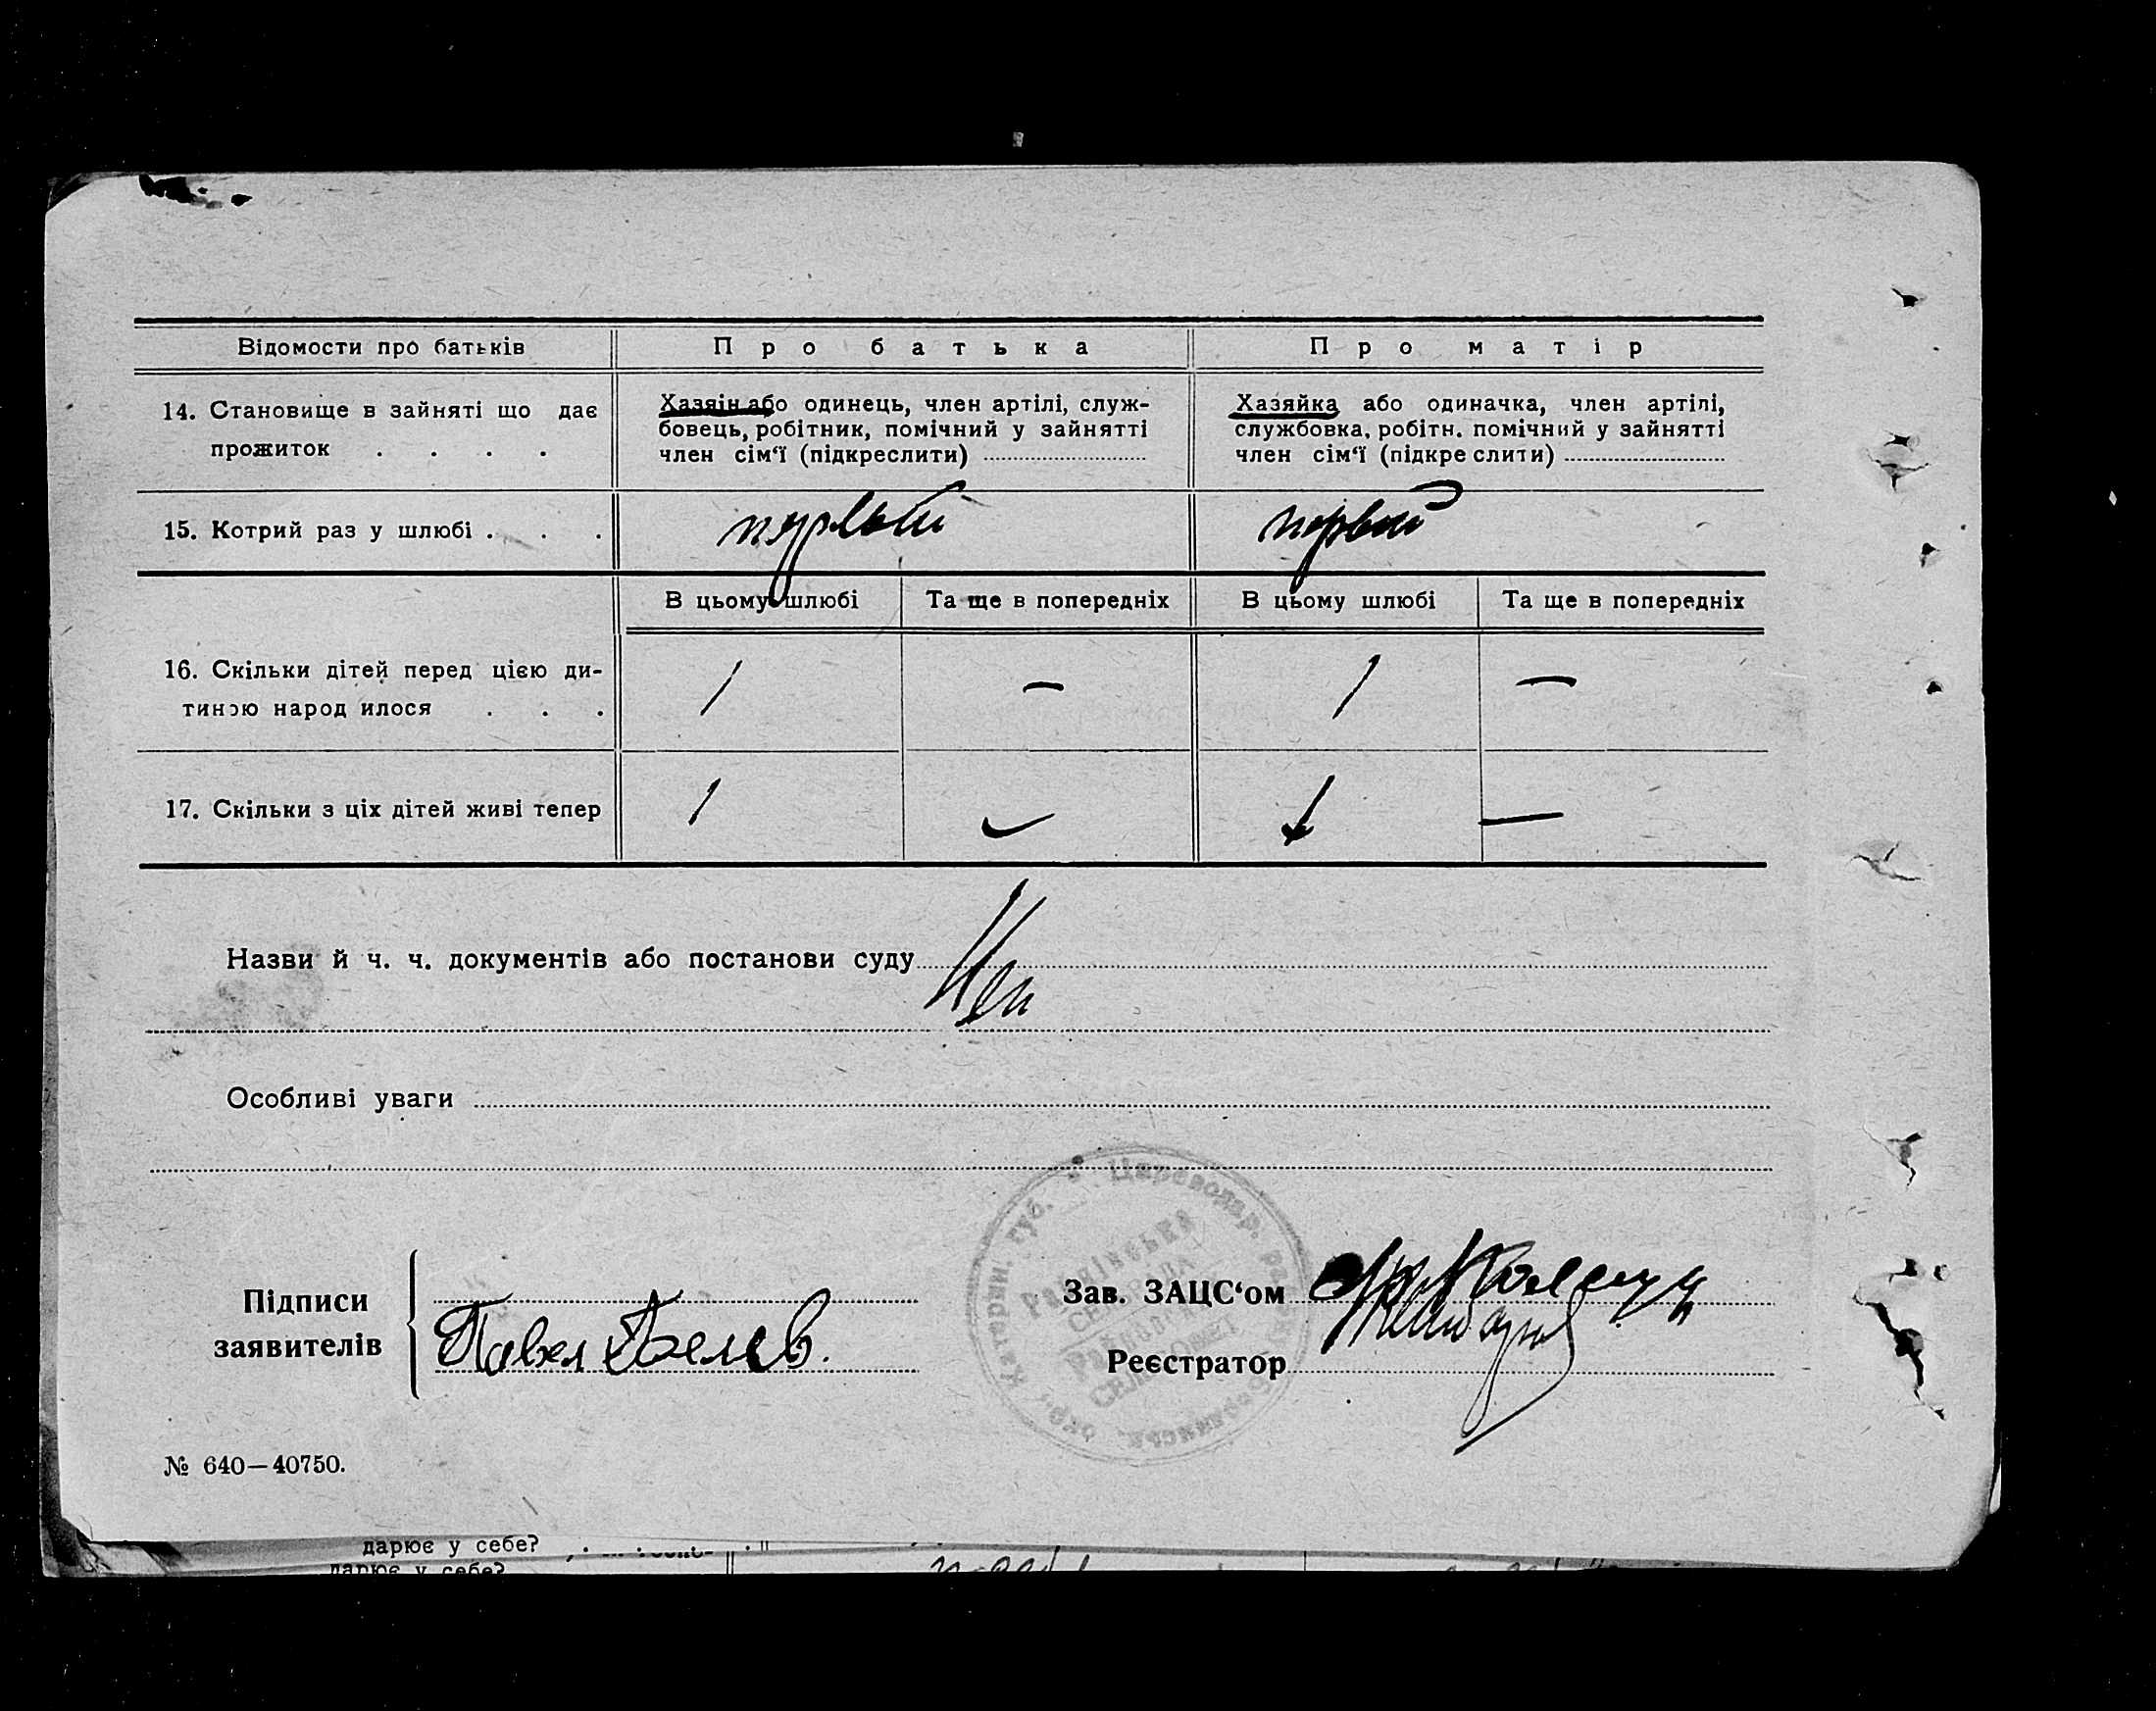 Відомости про батьків
Про батька
Про матір
14. Становище в зайняті що дає
прожиток . . . .
Хазяін або одинець, член артілі, служ-
бовець, робітник, помічний у зайнятті
член сім‘ї (підкреслити)
Хазяйка або одиначка, член артілі,
службовка, робітн. помічний у зайнятті
член сім‘ї (підкреслити)
15. Котрий раз у шлюбі . . .
первый
первый
В цьому шлюбі
Та ще в попередніх
В цьому шлюбі
Та ще в попередніх
16. Скільки дітей перед цією ди-
тиною народилося . . .
1
—
1
—
17. Скільки з ціх дітей живі тепер
1
—
1
—
Назви й ч. ч. документів або постанови суду
Особливі уваги
Катерин. губ. Цареводар. окр.
Підписи
заявителів
Павел
Зав. ЗАЦС‘ом
Реєстратор
№ 640—40750.
дарює у себе?
дарює у себе?